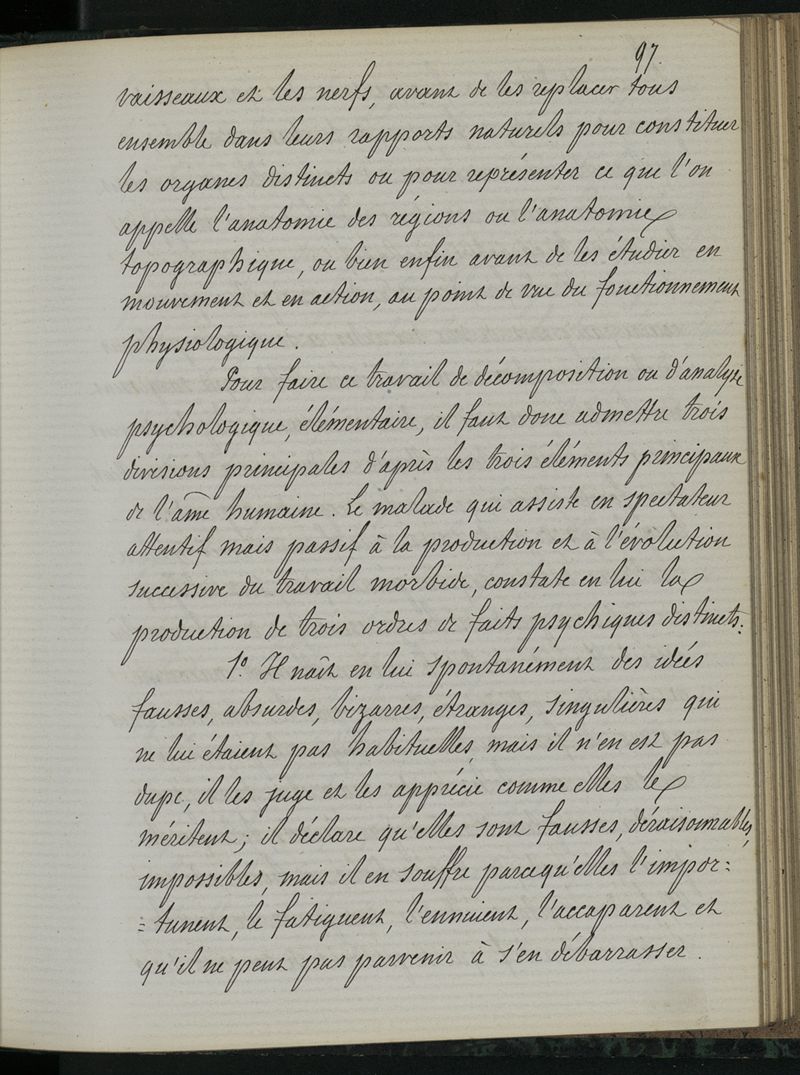 97
vaisseaux et les nerfs, avant de les replacer tous
ensemble dans leurs rapports naturels pour constituer
les organes distincts ou pour représenter ce que l'on
appelle l'anatomie des régions ou l'anatomie
topographique, ou bien enfin avant de les étudier en
mouvement et en action, au point de vue du fonctionnement
physiologique.
Pour faire ce travail de décomposition ou d'analyse
psychologique, élémentaire, il faut donc admettre trois
divisions principales d'après les trois éléments principaux
de l'âme humaine. Le malade qui assiste en spectateur
attentif mais passif à la production et à l'évolution
successive du travail morbide, constate en lui la
production de trois ordres de faits psychiques distincts.
1° Il naît en lui spontanément des idées
fausses, absurdes, bizarres, étranges, singulières qui
ne lui étaient pas habituelles, mais il n'en est pas
dupe, il les juge et les apprécie comme elles le
méritent; il déclare qu'elles sont fausses, déraisonnables,
impossibles, mais il en souffre parcequ'elles l'impor=
=tunent, le fatiguent, l'ennuient, l'accaparent et
qu'il ne peut pas parvenir à s'en débarrasser.